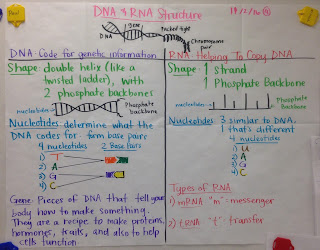 DNA & RNA Structure
gene
DNA
Packed tight
Chromosome pair
DNA-Code for genetic information
Shape: double helix (like a
twisted ladder), with
2 phosphate backbones
nucleotides
Phosphate
backbone
Nucleotides: determine what the
DNA codes for. form base pairs
4 nucleotides 2 Base Pairs
1) T
2) A
3) G
4) C
Gene: Pieces of DNA that tell your
body how to make something.
They are a recipe to make proteins,
hormones, traits, and also to help
cells function
RNA-Helping To Copy DNA
Shape: 1 Strand
1 Phosphate Backbone
nucleotides
Phosphate
Backbone
Nucleotides: 3 similar to DNA.
1 that's different
4 nucleotides
1) U
2) A
3) G
4) C
Types of RNA
1) mRNA "m"-messenger
2) tRNA "t"-transfer